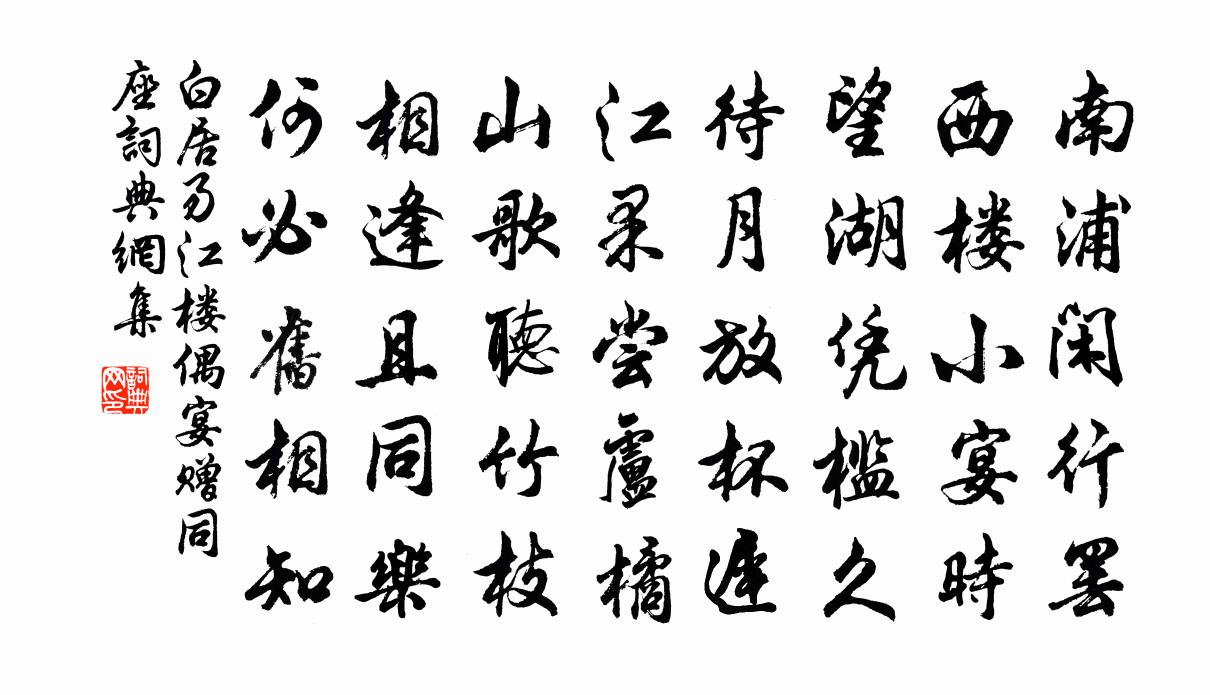 南浦闲行罢
西楼小宴時
望湖凭槛久
待月放杯遲
江果尝盧橘
山歌聽竹枝
相逢且同樂
何必舊相知
白居易江楼偶宴赠同
座詞典網集
詞典
网印